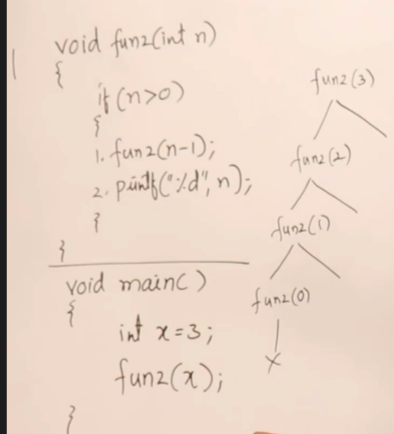 void fun2(int n)
{
if (n>0)
{
1. fun2(n-1);
2. printf("%d", n);
}
}
void main()
{
int x=3;
fun2(x);
}
fun2(3)
fun2(2)
fun2(1)
fun2(0)
x